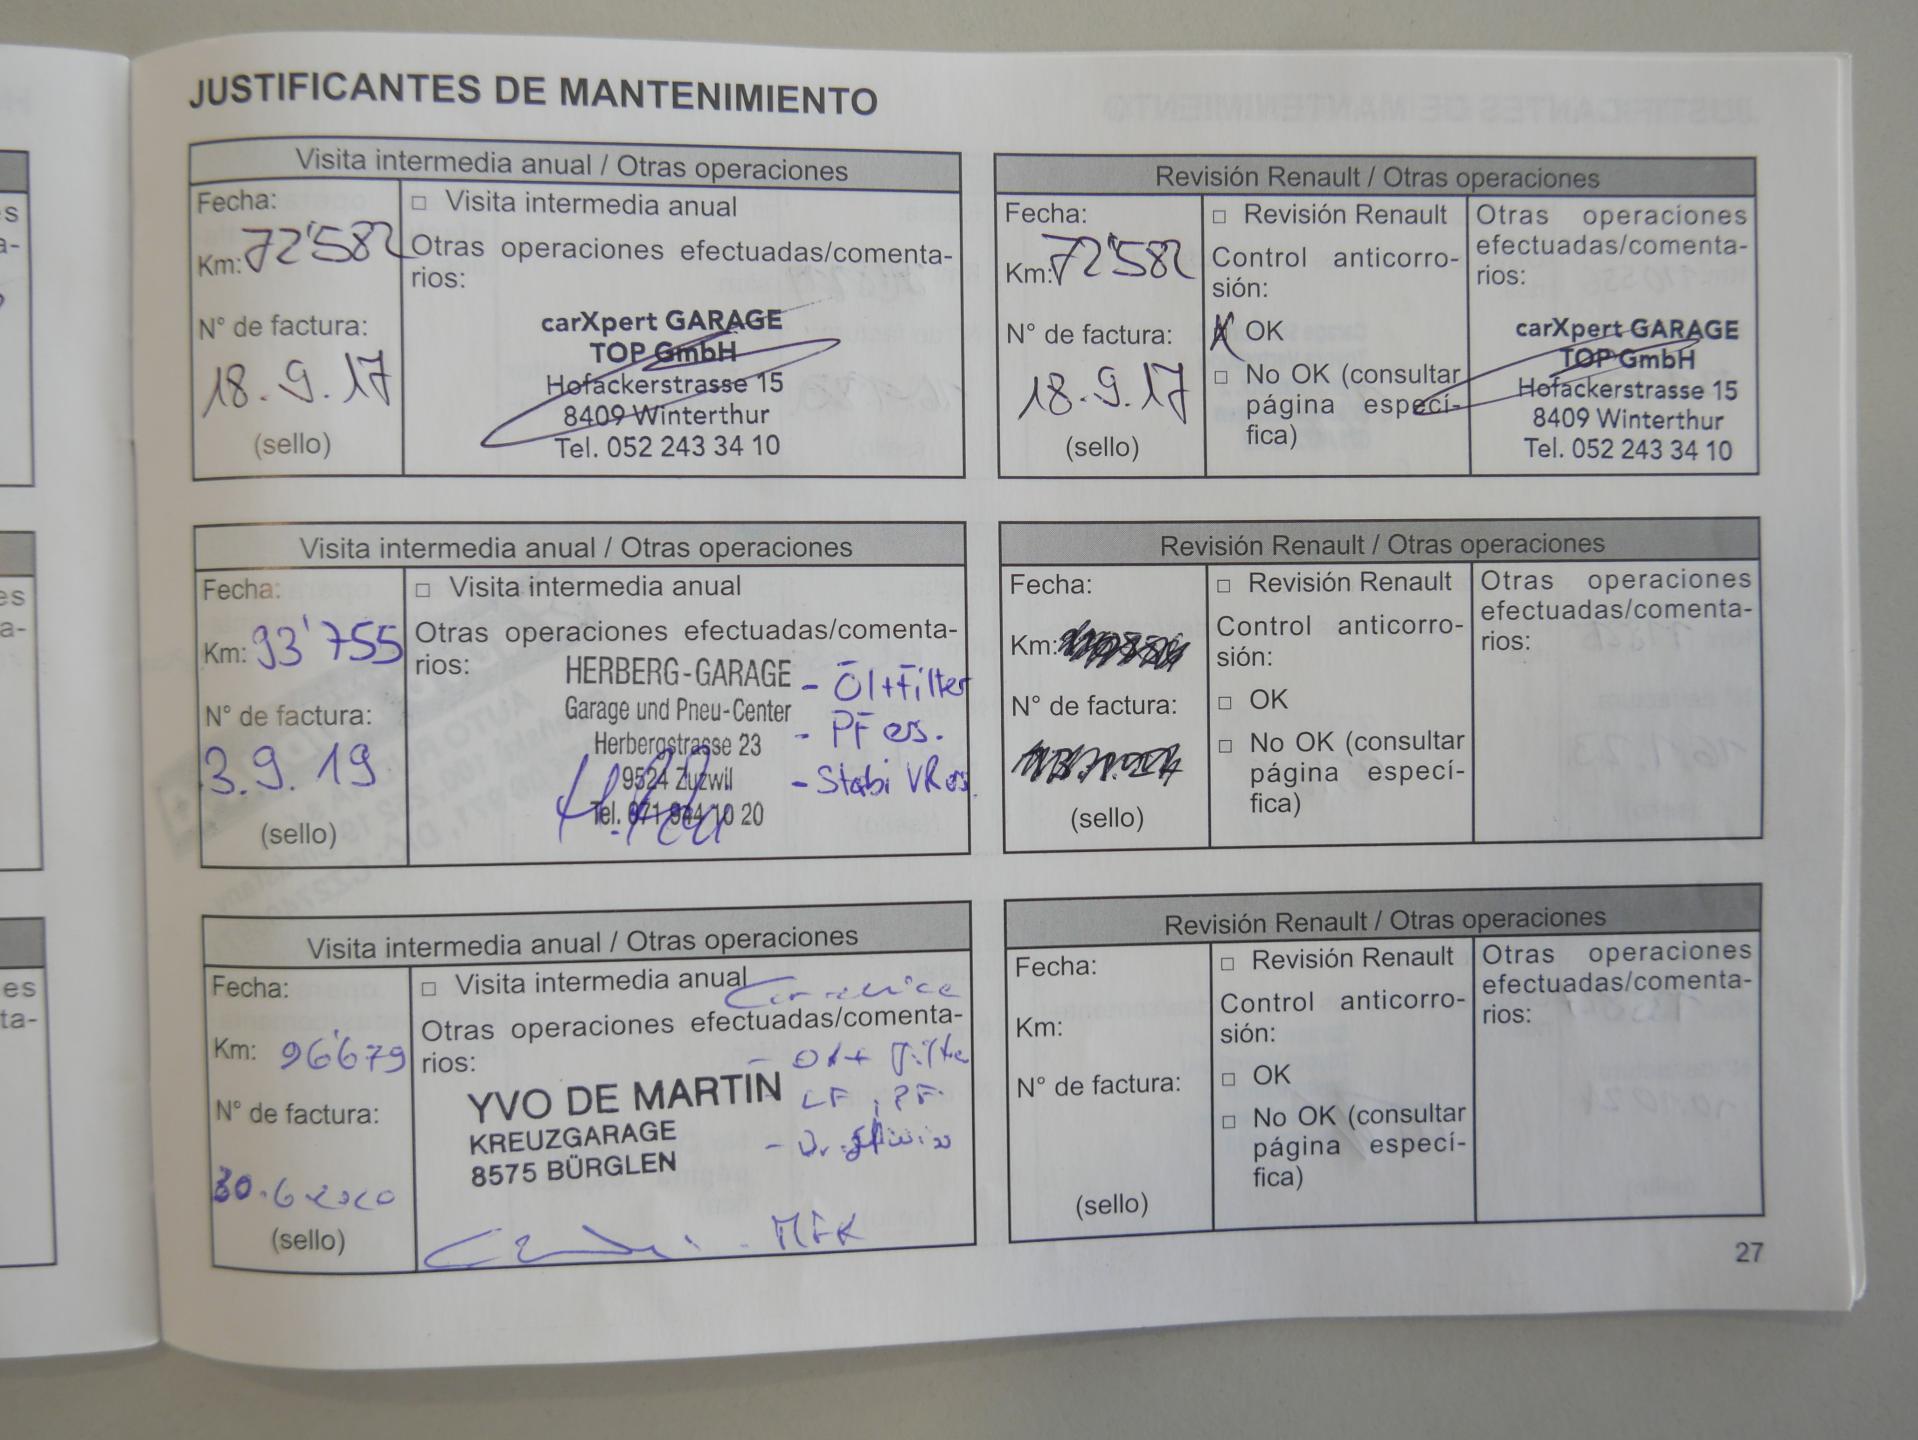 JUSTIFICANTES DE MANTENIMIENTO
Visita intermedia anual / Otras operaciones
Fecha:
Km: 72'582
N° de factura:
18.9.17
(sello)
□ Visita intermedia anual
Otras operaciones efectuadas/comenta-
rios:
carXpert GARAGE
TOP GmbH
Hofackerstrasse 15
8409 Winterthur
Tel. 052 243 34 10
Revisión Renault / Otras operaciones
Fecha:
Km: 72'582
N° de factura:
18.9.17
(sello)
□ Revisión Renault
Control anticorro-
sión:
X OK
□ No OK (consultar
página especí-
fica)
Otras operaciones
efectuadas/comenta-
rios:
carXpert GARAGE
TOP GmbH
Hofackerstrasse 15
8409 Winterthur
Tel. 052 243 34 10
Visita intermedia anual / Otras operaciones
Fecha:
Km: 93'755
N° de factura:
3.9.19
(sello)
□ Visita intermedia anual
Otras operaciones efectuadas/comenta-
rios:
HERBERG-GARAGE
Garage und Pneu-Center
Herbergstrasse 23
9524 Zuzwil
Tel. 071 944 10 20
- Öl+Filter
- PF ers.
- Stabi VR ers.
Revisión Renault / Otras operaciones
Fecha:
Km:
N° de factura:
(sello)
□ Revisión Renault
Control anticorro-
sión:
□ OK
□ No OK (consultar
página especí-
fica)
Otras operaciones
efectuadas/comenta-
rios:
Visita intermedia anual / Otras operaciones
Fecha:
Km: 96'679
N° de factura:
30.6 2020
(sello)
□ Visita intermedia anual
Otras operaciones efectuadas/comenta-
rios:
- Öl + Filte
YVO DE MARTIN
KREUZGARAGE
8575 BÜRGLEN
- LF, PF.
- MFK
Revisión Renault / Otras operaciones
Fecha:
Km:
N° de factura:
(sello)
□ Revisión Renault
Control anticorro-
sión:
□ OK
□ No OK (consultar
página especí-
fica)
Otras operaciones
efectuadas/comenta-
rios:
27